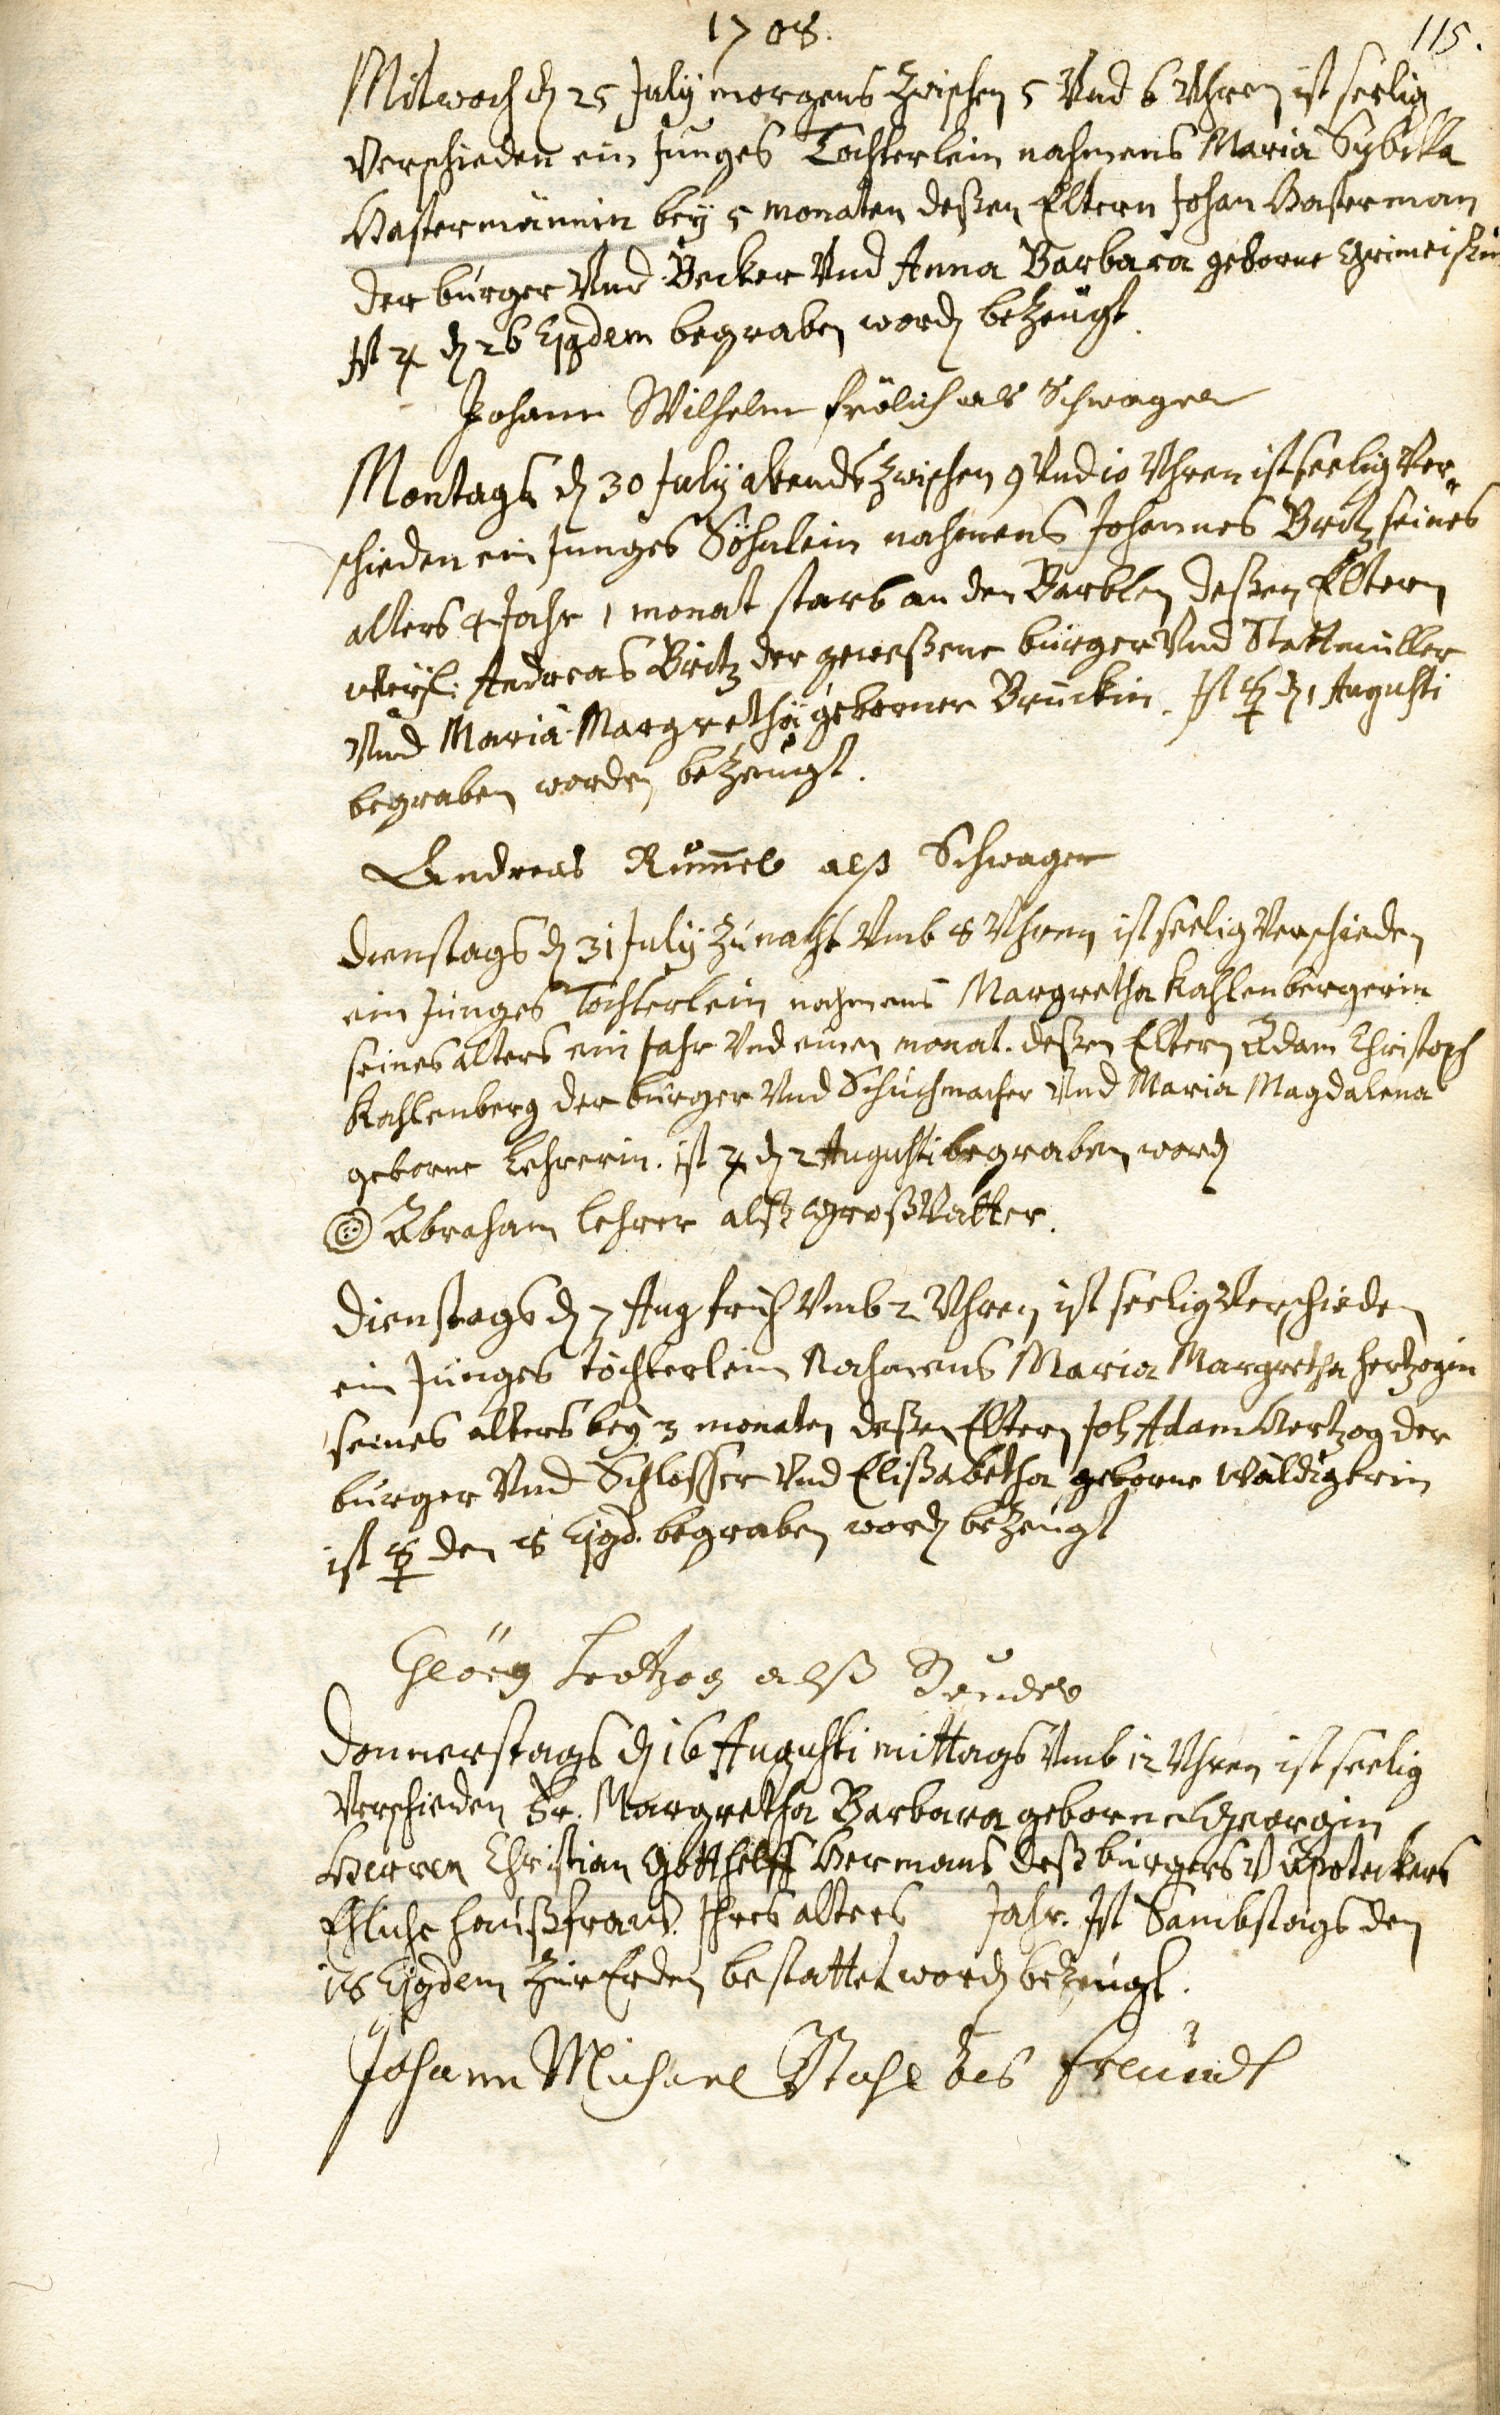 1708.
115.
Mitwoch dn 25 July morgens zwischen 5 Vnd 6 Vhren ist seelig
Verschieden ein Junges Töchterlein nahmens Maria Sybilla
Hastermännin bey 5 monaten deßen Eltern Johan Hasterman
der burger Vnd Becker Vnd Anna Barbara geborne
Ist ♃ dn 26 Ejqdem begraben word bezeugt.
Johann Wilhelm frölich als Schwager
Montags dn 30 July abends zwischen 9 Vnd 10 Vhren ist seelig Ver-
schieden ein Junges Söhnlein nahmens Johannes Britz seines
alters 4 Jahr 1 monat starb an den Barblen deßen Eltern
weyl: Andreas Britz der geweßene burger Vnd Stattmüller
Vnd Maria Margretha geborner Brückin. Ist ☿ dn 1 Augusti
begraben worden bezeugt.
Andreas Rum̄el alß Schwager
Dienstags dn 31 July zu nacht Vmb 8 Vhren ist seelig Verschieden
ein Junges Töchterlein nahmens Margretha Kahlenbergerin
seines alters ein Jahr Vnd einen monat. deßen Eltern Adam Christoph
Kahlenberg der burger Vnd Schuchmacher Vnd Maria Magdalena
geborne Lehrerin. ist ♃ dn 2 Augusti begraben word
Abraham Lehrer alß GroßVatter.
Dienstags dn 7 Aug früh Vmb 2 Vhren ist seelig Verschieden
ein Junges töchterlein Nahmens Maria Margretha Hertzogin
seines alters bey 3 monaten deßen Eltern Joh Adam Hertzog der
burger Vnd Schlosser Vnd Elißabetha geborne Wäldigkerin
ist ☿ den 8 Ejqd. begraben word bezeugt
Geörg Hertzog alß Bruder
Donnerstags dn 16 Augusti mittags Vmb 12 Vhren ist seelig
Verschieden Fr. Margretha Barbara geborne Georgin
Herren Christian Gotthelff Hermans deß burgers V Apoteckers
Ehliche haußfraw. Ihres alters Jahr. Ist Sambstags den
18 Ejqdem zur Erden bestattet word bezeugt.
Johann Michael Stahl als freundt